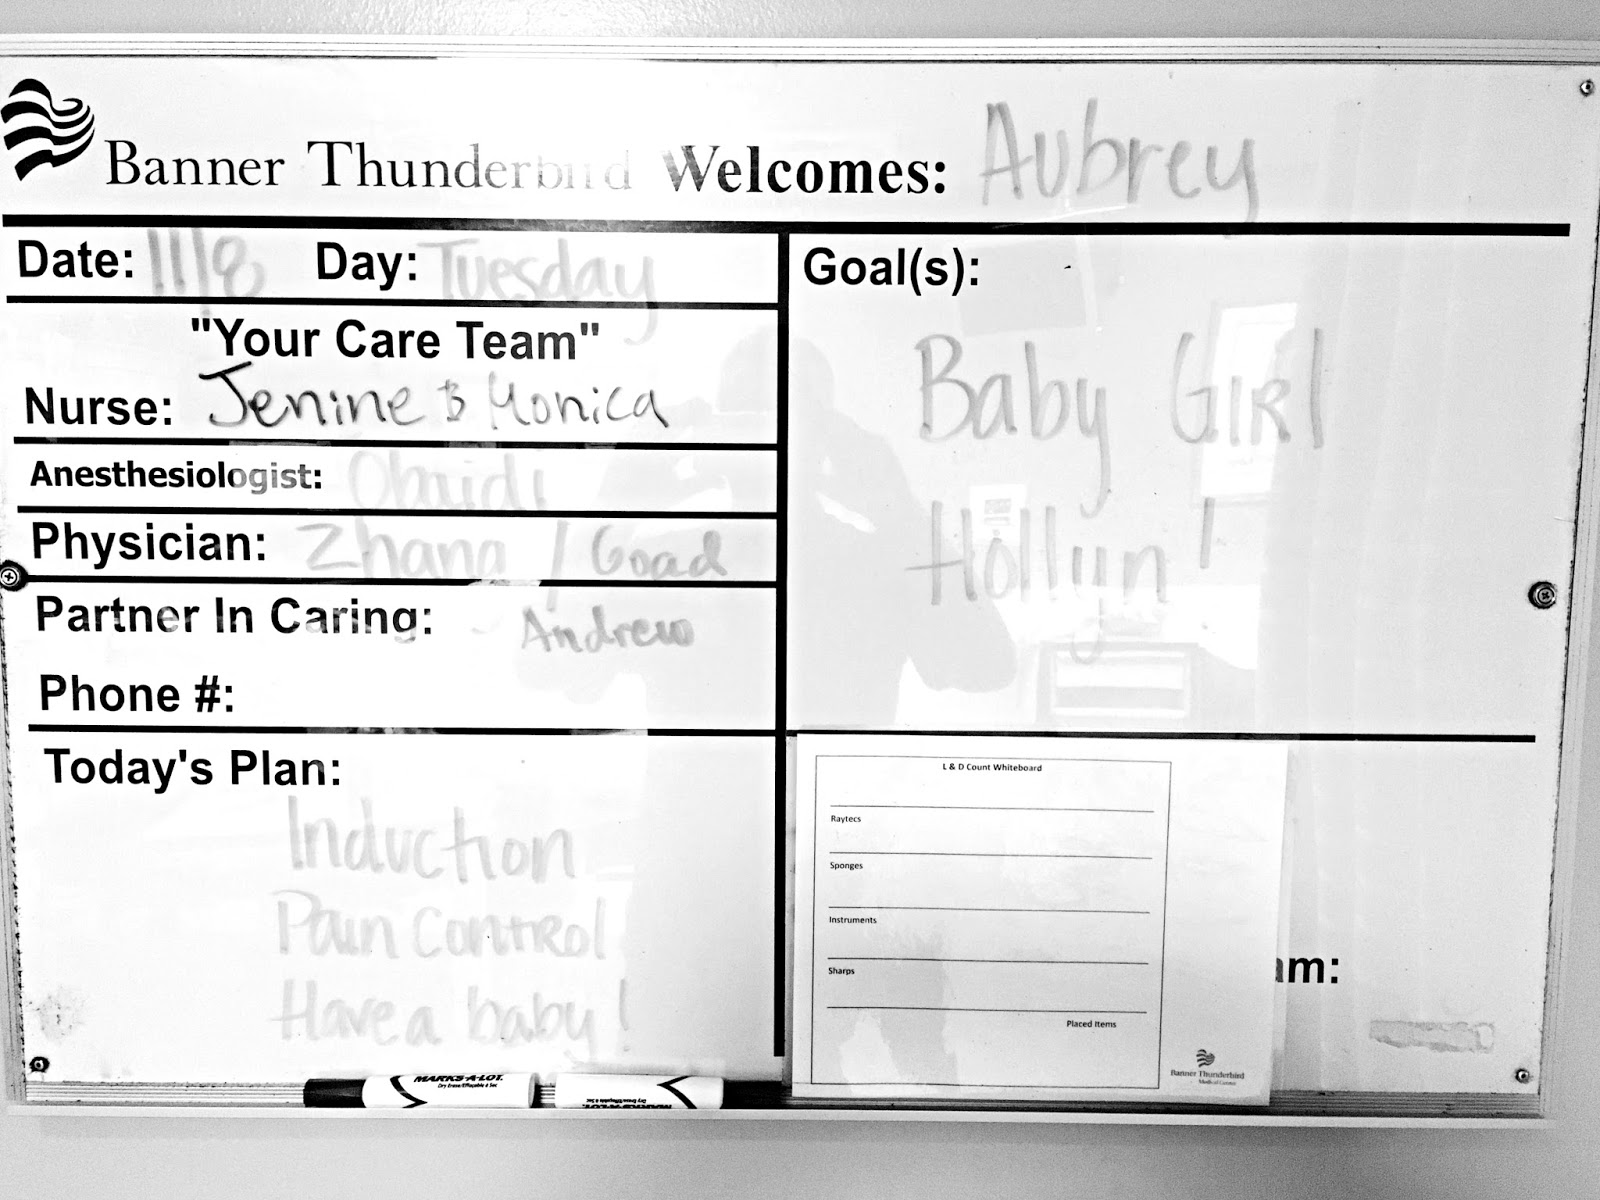 Banner Thunderbird Welcomes: Aubrey
Date: 11/8 Day: Tuesday
"Your Care Team"
Nurse: Jenine & Monica
Anesthesiologist: Obaidi
Physician: Zhang / Goad
Partner In Caring: Andrew
Phone #:
Today's Plan:
Induction
Pain Control
Have a baby!
Goal(s):
Baby Girl
Hollyn!
L & D Count Whiteboard
Raytecs
Sponges
Instruments
Sharps
Placed Items
Banner Thunderbird
Medical Center
am:
MARKS-A-LOT
Dry Erase/Effaçable à Sec
MARKS-A-LOT
Dry Erase/Effaçable à Sec